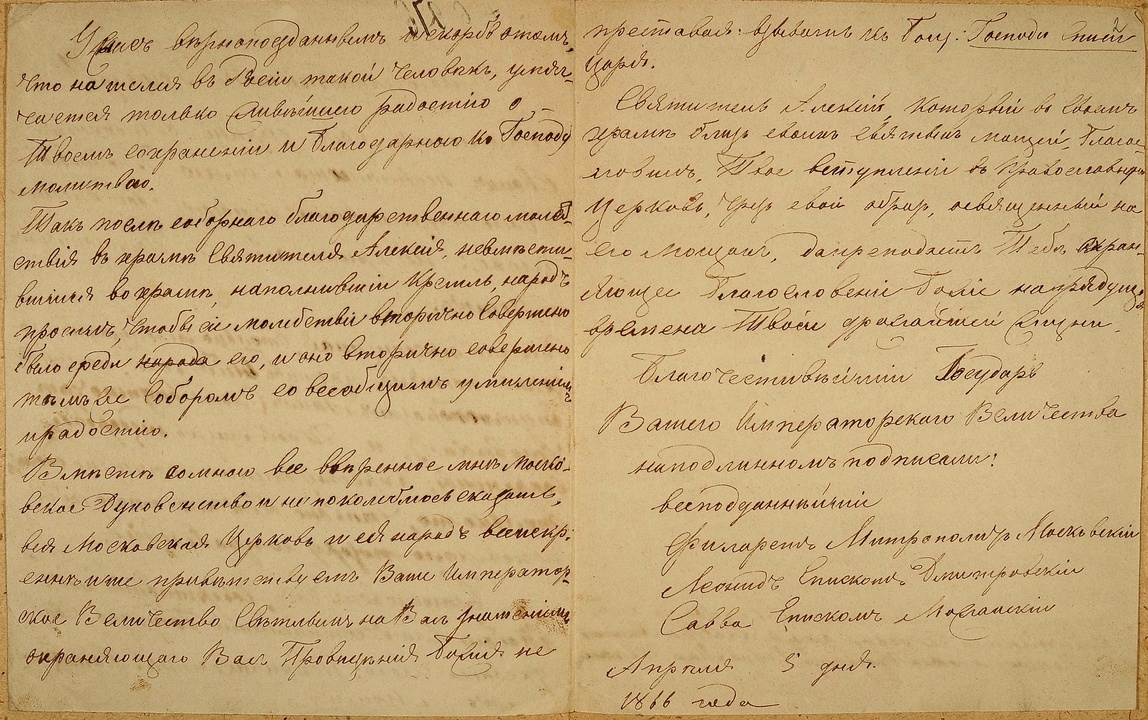 Ужасъ вѣрноподданныхъ и скорбь о томъ,
что нашелся въ Россіи такой человѣкъ, умягчается
только живѣйшею радостію о
Твоемъ сохраненіи и благодарною ко Господу
молитвою.
Такъ послѣ соборнаго благодарственнаго молеб-
ствія въ храмѣ Святителя Алексія, невмѣсти-
вшійся во храмѣ, наполнявшій Кремль, народъ
просилъ, чтобы сіе молебствіе вторично совершено
было среди народа его, и оно вторично совершено
тѣмъ же Соборомъ, со всеобщимъ умиленіемъ
и радостію.
Вмѣстѣ со мною все ввѣренное мнѣ Моско-
вское Духовенство и не поколеблюсь сказать,
вся Московская Церковь и ея народъ всеискр-
еннѣйше привѣтствуетъ Ваше Император-
ское Величество Свѣтлымъ на Васъ знаменіемъ
охраняющаго Васъ Провидѣнія Божія не
преставая взывать къ Богу: Господи спаси
Царя.
Святитель Алексій, который во своемъ
храмѣ близъ своихъ святыхъ мощей, благос-
ловилъ, Твое вступленіе въ Православную
Церковь, чрезъ свой образъ, освященный на
его мощахъ, да преподастъ Тебѣ охран-
яющее благословеніе Божіе на грядущія
времена Твоей дражайшей жизни.
Благочестивѣйшій Государь
Вашего Императорскаго Величества
на подлинномъ подписали:
всеподданнѣйшій
Филаретъ Митрополитъ Московскій
Леонидъ Епископъ Дмитровскій
Савва Епископъ Можайскій
Апрѣля 5 дня.
1866 года